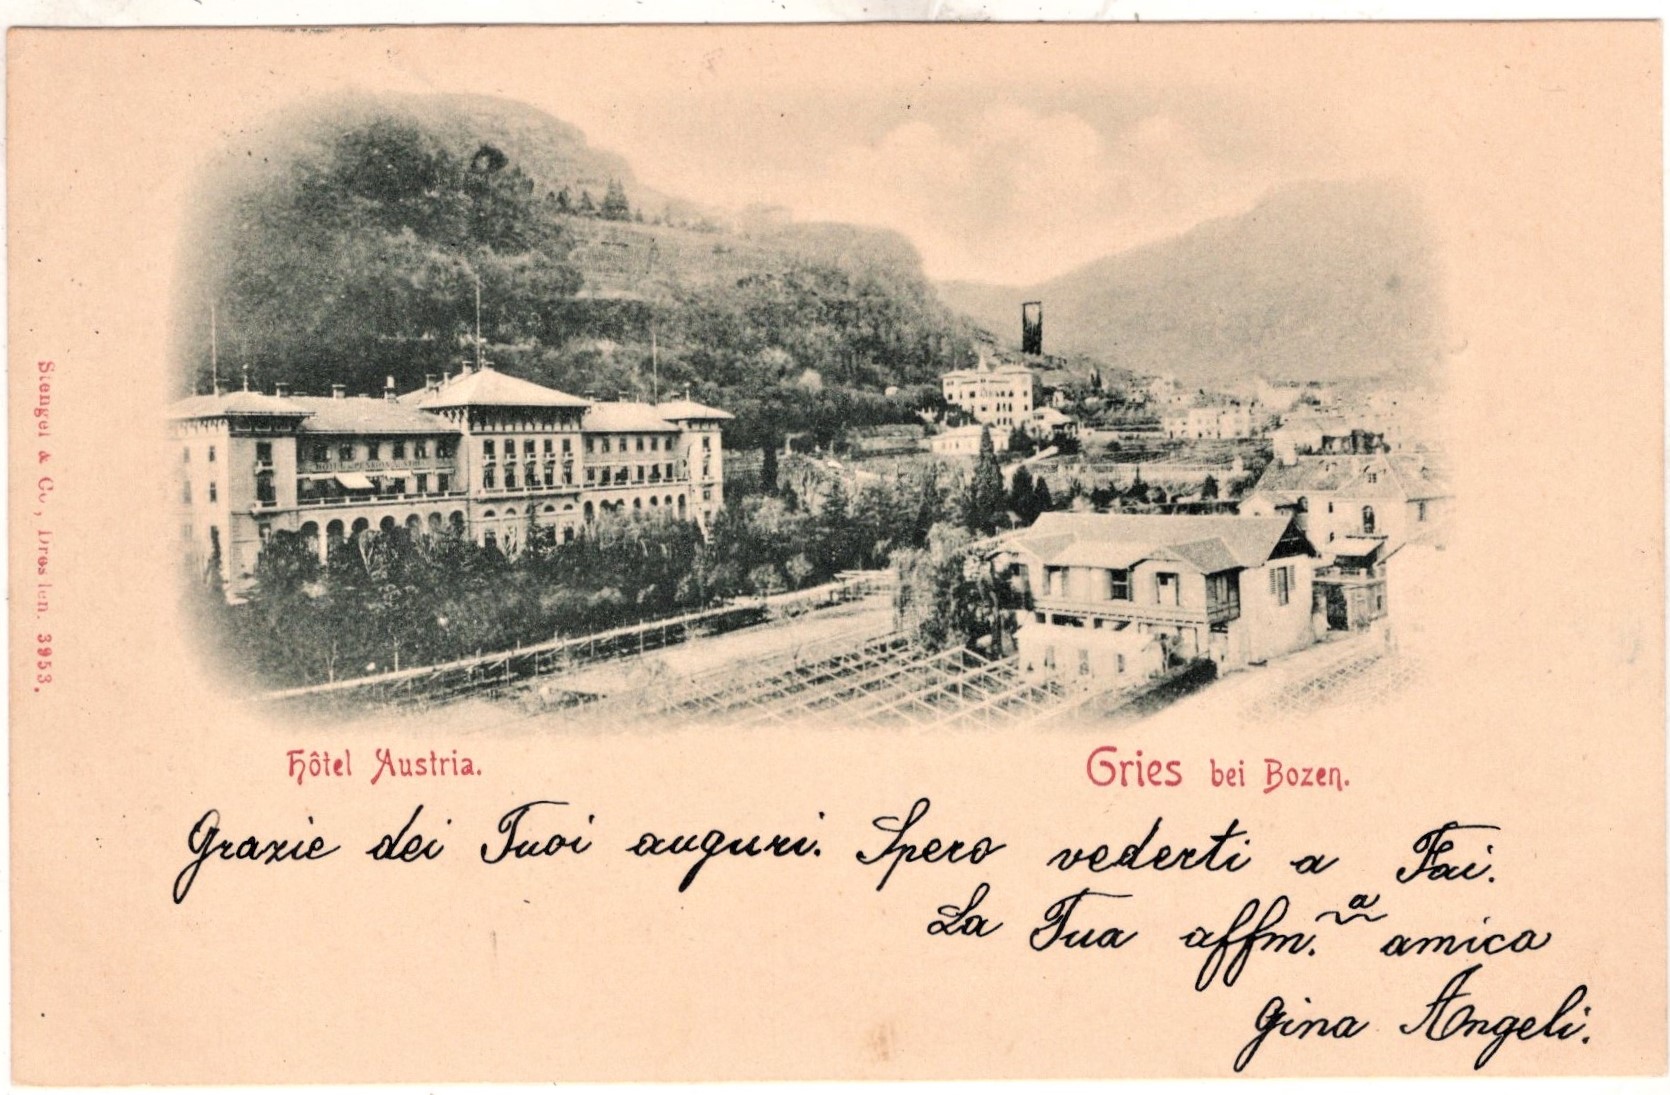 HÔTEL & PENSION AUSTRIA
Stengel & Co, Dresden. 3953.
Hôtel Austria.
Gries bei Bozen.
Grazie dei Tuoi auguri. Spero vederti a Fai.
La Tua affm.ª amica
Gina Angeli.